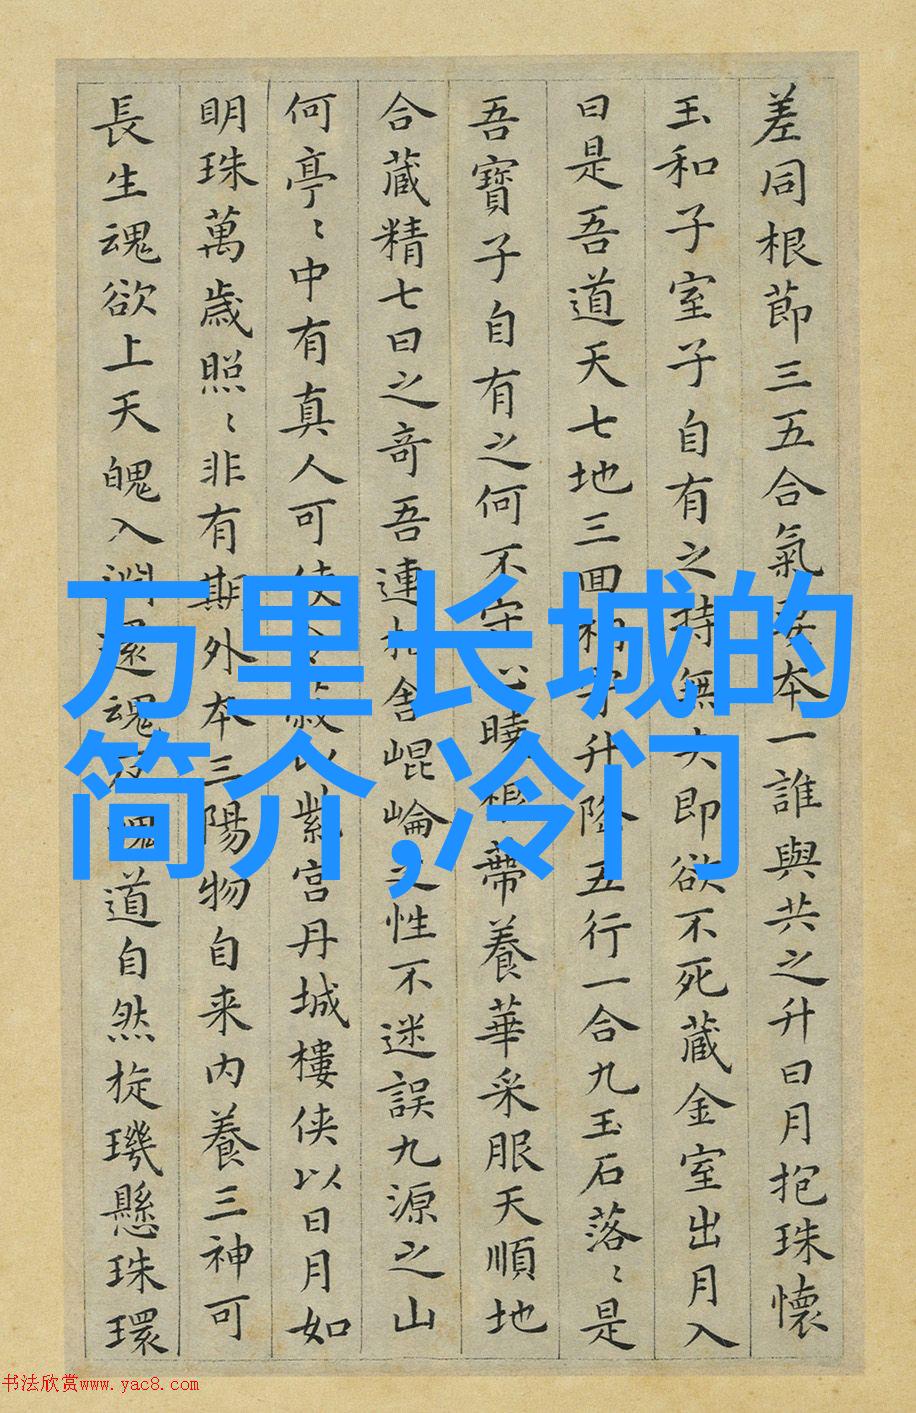 差同根節三五合氣要本一誰與共之升日月抱珠懷
玉和子室子自有之持無失即欲不死藏金室出月入
日是吾道天七地三回相守升降五行一合九玉石落〻是
吾寶子自有之何不守心曉根蒂養華采服天順地
合藏精七日之奇吾連相舍崐崘之性不迷誤九源之山
何亭〻中有真人可使令蔽以紫宮丹城樓侠以日月如
明珠萬歲照〻非有期外本三陽物自来内養三神可
長生魂欲上天魄入淵還魂反魄道自然旋璣懸珠環
万里长城的
简介,冷门
书法欣赏www.yac8.com